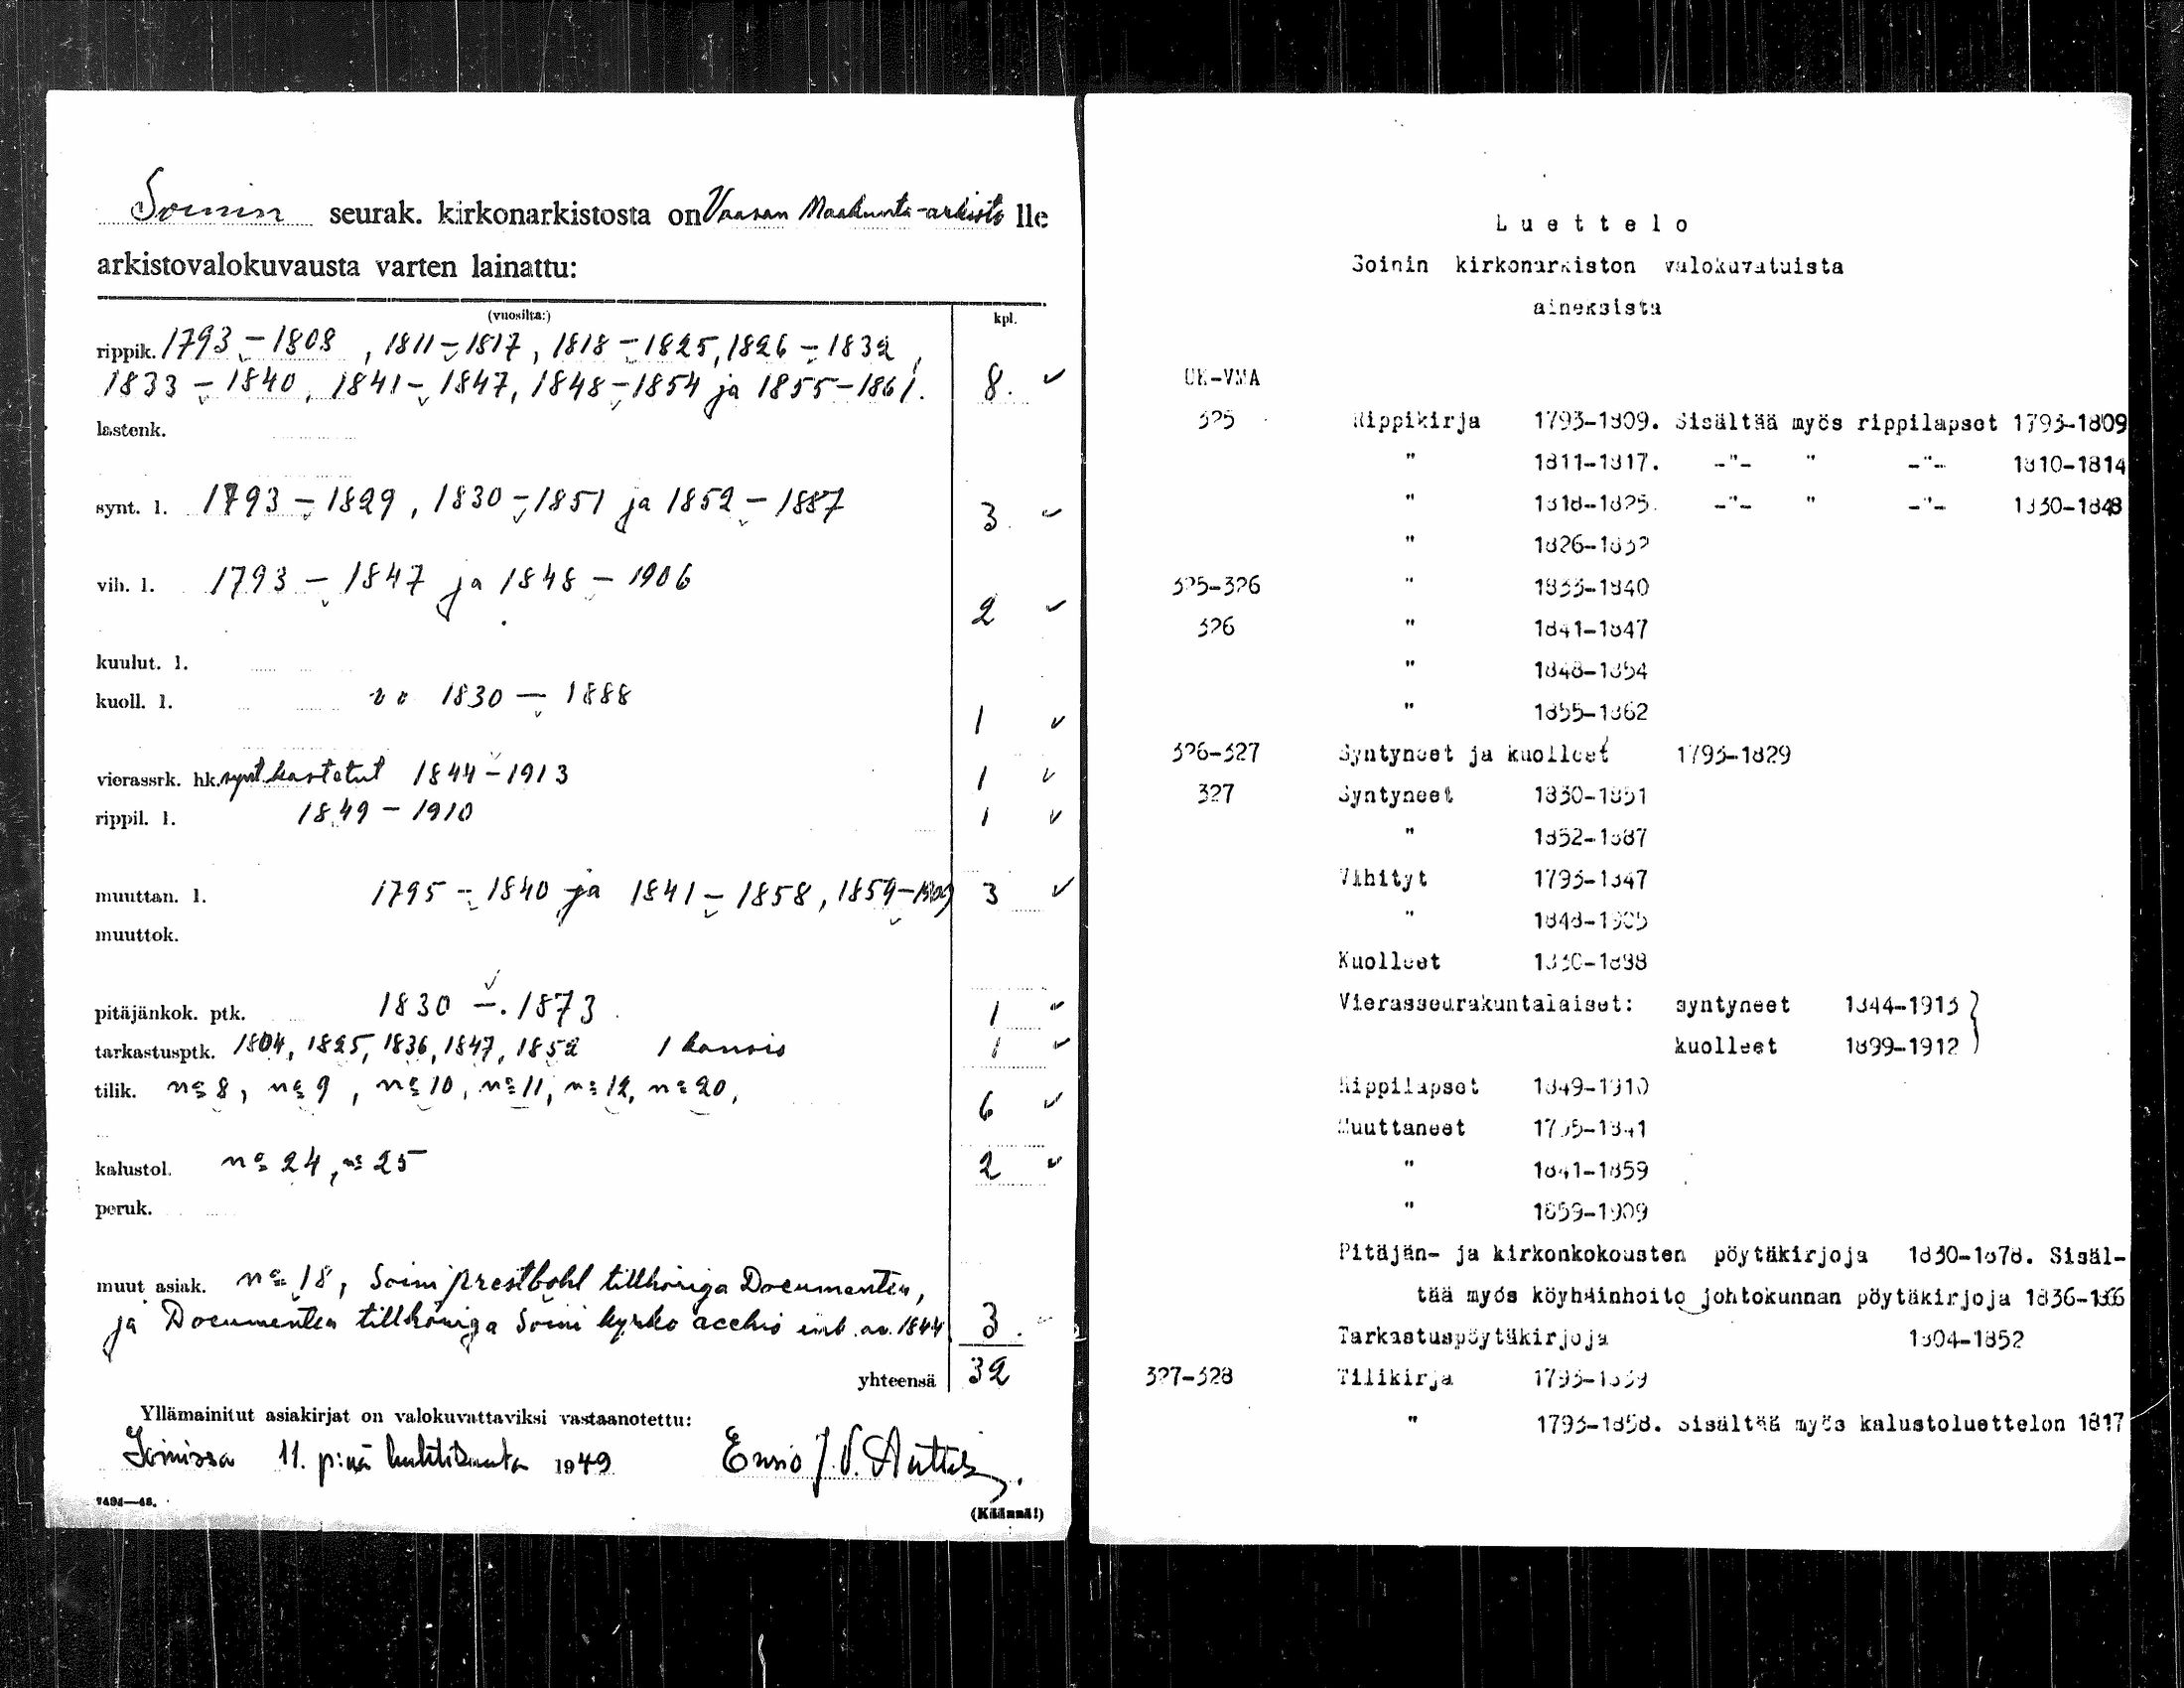 Soinin seurak. kirkonarkistosta on Vaasan Maakunta-arkisto lle
arkistovalokuvausta varten lainattu:
(vuosilta:) kpl.
rippik. 1793-1808, 1811-1817, 1818-1825, 1826-1832,
1833-1840, 1841-1847, 1848-1854 ja 1855-1861. 8.
lastenk.
synt. l. 1793-1829, 1830-1851 ja 1852-1887 3
vih. l. 1793-1847 ja 1848-1906 2
kuulut. l.
kuoll. l. 1830-1888 1
vierassrk. hk. synt. kastetut 1844-1913 1
rippil. l. 1849-1910 1
muuttan. l. 1795-1840 ja 1841-1858, 1859-1909 3
muuttok.
pitäjänkok. ptk. 1830-1873 1
tarkastusptk. 1804, 1825, 1836, 1847, 1852 1 kansio 1
tilik. no 8, no 9, no 10, no 11, no 12, no 20, 6
kalustol. no 24, no 25 2
peruk.
muut asiak. no 18, Soini prestbohl tillhöriga Documenten,
ja Documenten tillhöriga Soini kyrko 1844 3.
yhteensä 32
Yllämainitut asiakirjat on valokuvattaviksi vastaanotettu:
Soinissa 11. p:nä huhtikuuta 1949 Ensio J. V.
7494—48.
(Käännä!)
Luettelo
Soinin kirkonarkiston valokuvatuista
aineksista
UK-VMA
325 Rippikirja 1793-1809. Sisältää myös rippilapset 1793-1809
" 1811-1817. -"- " -"- 1810-1814
" 1818-1825. -"- " -"- 1830-1848
" 1826-1832
325-326 " 1833-1840
326 " 1841-1847
" 1848-1854
" 1855-1862
326-327 Syntyneet ja kuolleet 1793-1829
327 Syntyneet 1830-1851
" 1852-1887
Vihityt 1793-1847
" 1848-1905
Kuolleet 1830-1888
Vierasseurakuntalaiset: syntyneet 1844-1913
kuolleet 1899-1912
Rippilapset 1849-1910
Muuttaneet 1795-1841
" 1841-1859
" 1859-1909
Pitäjän- ja kirkonkokousten pöytäkirjoja 1830-1878. Sisäl-
tää myös köyhäinhoito johtokunnan pöytäkirjoja 1836-1866
Tarkastuspöytäkirjoja 1804-1852
327-328 Tilikirja 1793-1839
" 1793-1858. Sisältää myös kalustoluettelon 1817